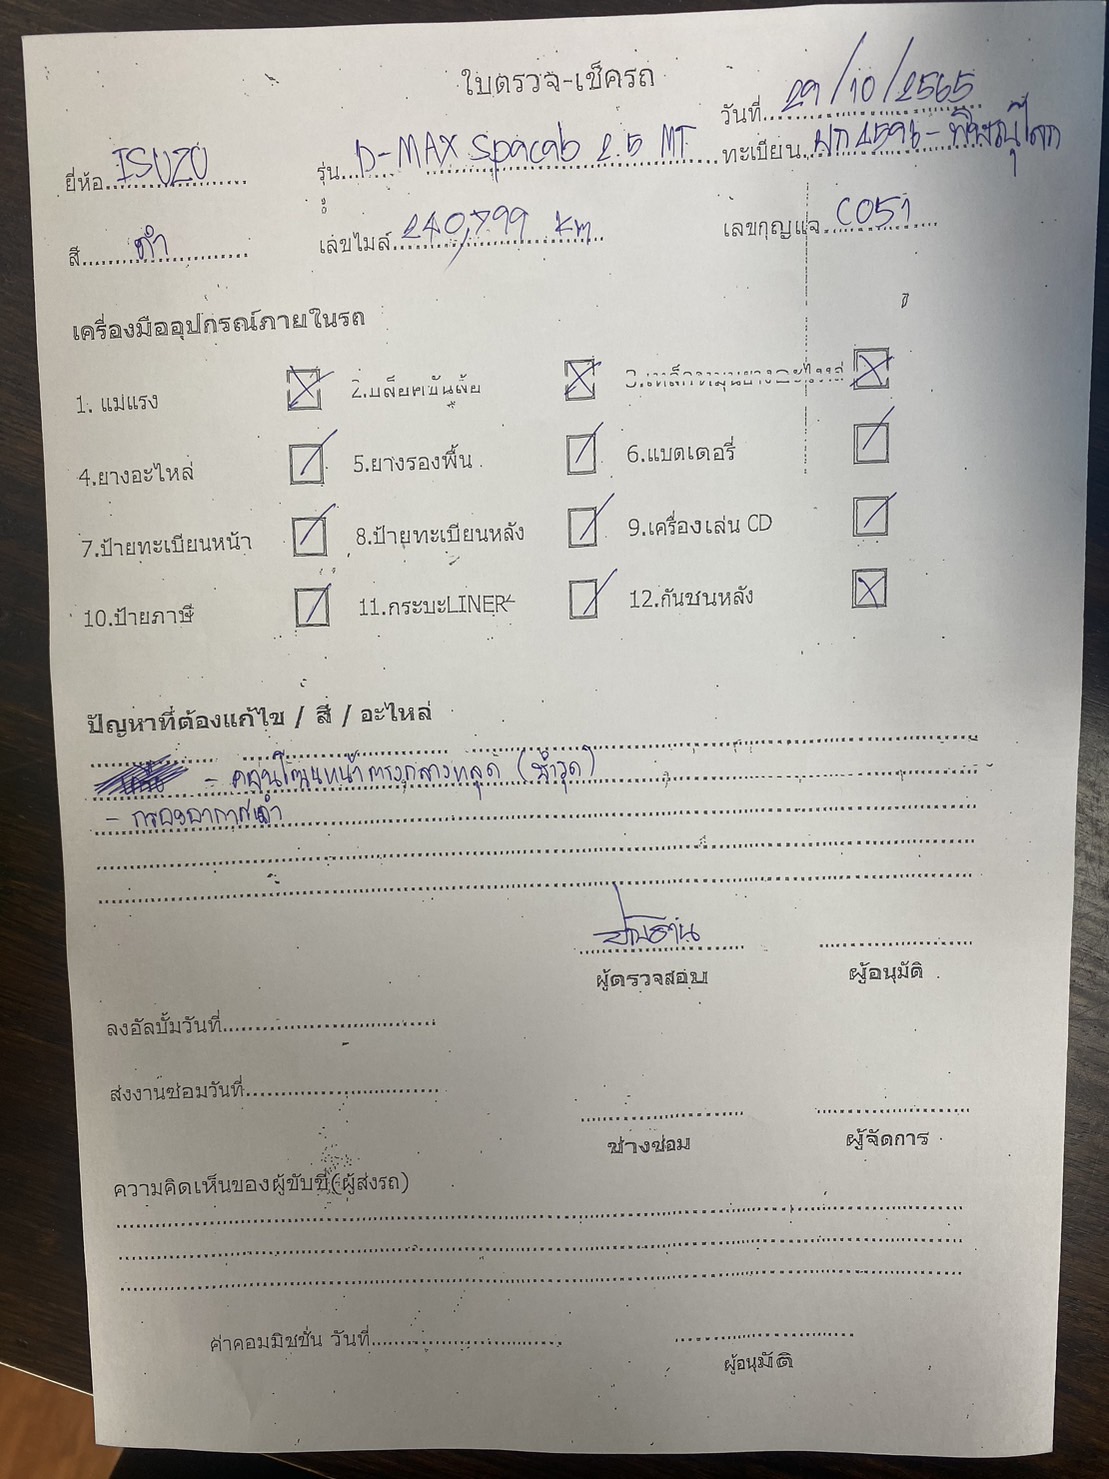 ใบตรวจ-เช็ครถ
วันที่ 29/10/2565
ยี่ห้อ ISUZU รุ่น D-MAX Spacab 2.5 MT ทะเบียน
สี ดำ เลขไมล์ 240,799 km เลขกุญแจ C051
เครื่องมืออุปกรณ์ภายในรถ
1. แม่แรง 2.บล๊อคขันล้อ
4.ยางอะไหล่ 5.ยางรองพื้น 6.แบตเตอรี่
7.ป้ายทะเบียนหน้า 8.ป้ายทะเบียนหลัง 9.เครื่องเล่น CD
10.ป้ายภาษี 11.กระบะLINER 12.กันชนหลัง
ปัญหาที่ต้องแก้ไข / สี / อะไหล่
(ชำรุด)
- กรองอากาศดำ
ผู้ตรวจสอบ ผู้อนุมัติ
ลงอัลบั้มวันที่
ส่งงานซ่อมวันที่
ช่างซ่อม ผู้จัดการ
ความคิดเห็นของผู้ขับขี่(ผู้ส่งรถ)
ค่าคอมมิชชั่น วันที่
ผู้อนุมัติ